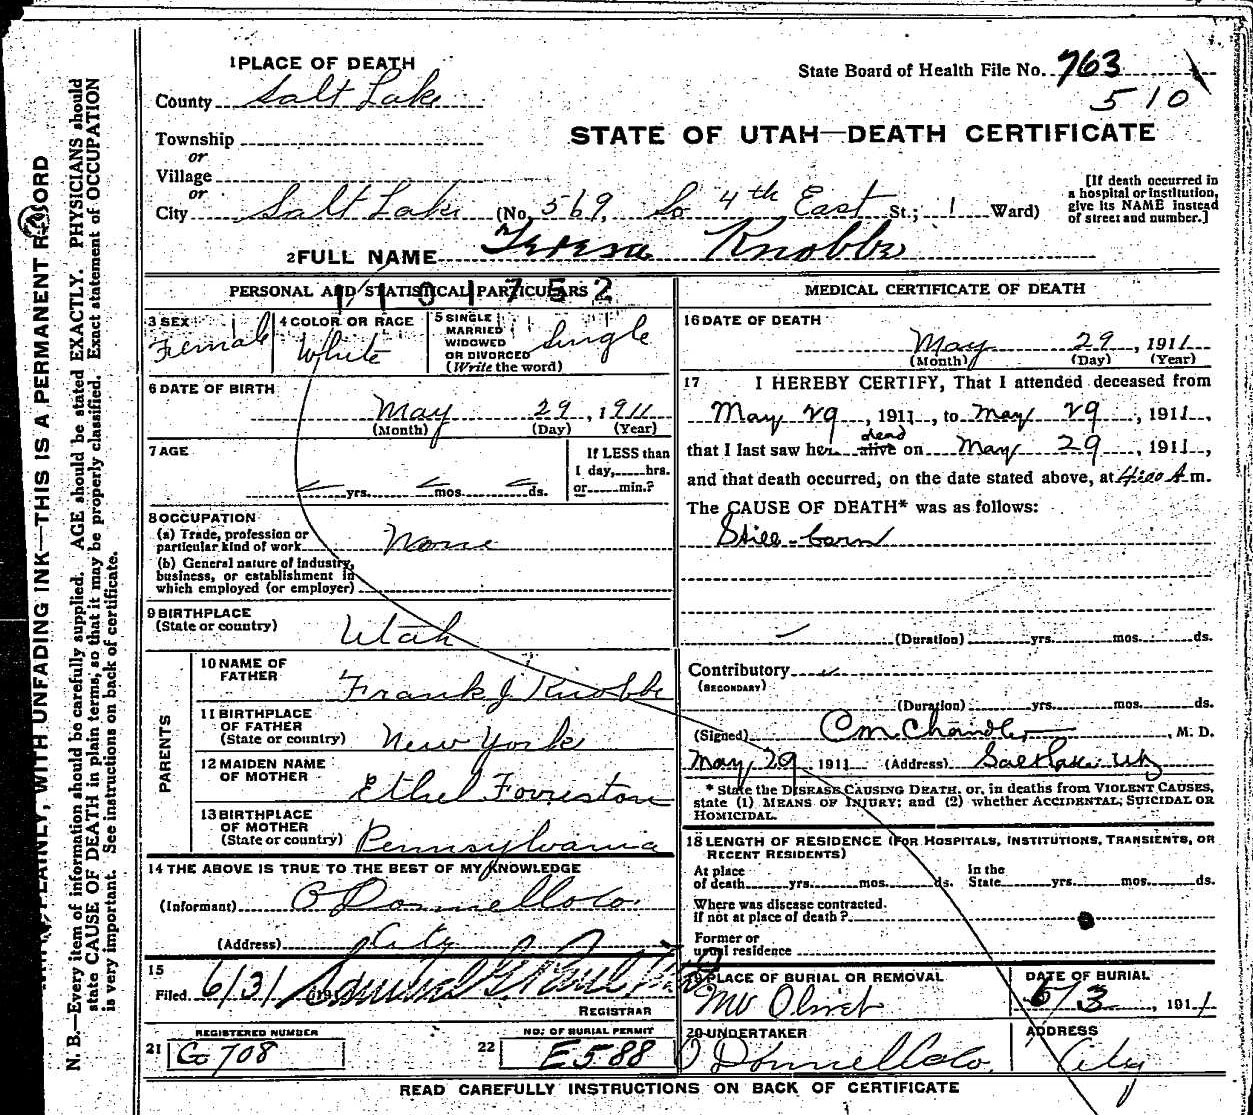 1 PLACE OF DEATH
County Salt Lake
State Board of Health File No. 763
510
Township
or
Village
or
STATE OF UTAH—DEATH CERTIFICATE
City Salt Lake (No. 569 So 4th East St.; 1 Ward)
[If death occurred in a hospital or institution, give its NAME instead of street and number.]
2 FULL NAME Teresa Knobbe
PERSONAL AND STATISTICAL PARTICULARS
1101752
3 SEX Female
4 COLOR OR RACE White
5 SINGLE MARRIED WIDOWED OR DIVORCED (Write the word) Single
6 DATE OF BIRTH
May 29, 1911
(Month) (Day) (Year)
7 AGE
yrs. mos. ds.
If LESS than 1 day, hrs. or min.?
8 OCCUPATION
(a) Trade, profession or particular kind of work None
(b) General nature of industry, business, or establishment in which employed (or employer)
9 BIRTHPLACE
(State or country) Utah
PARENTS
10 NAME OF FATHER Frank J Knobbe
11 BIRTHPLACE OF FATHER (State or country) New York
12 MAIDEN NAME OF MOTHER Ethel Forreston
13 BIRTHPLACE OF MOTHER (State or country) Pennsylvania
14 THE ABOVE IS TRUE TO THE BEST OF MY KNOWLEDGE
(Informant) O Donnell & Co.
(Address) City
15
Filed 6/3/ 191
REGISTRAR
REGISTERED NUMBER
21 Co 708
NO. OF BURIAL PERMIT
22 E588
MEDICAL CERTIFICATE OF DEATH
16 DATE OF DEATH
May 29, 1911
(Month) (Day) (Year)
17 I HEREBY CERTIFY, That I attended deceased from
May 29, 1911, to May 29, 1911,
that I last saw her alive dead on May 29, 1911,
and that death occurred, on the date stated above, at 4:00 A m.
The CAUSE OF DEATH* was as follows:
Still-born
(Duration) yrs. mos. ds.
Contributory
(SECONDARY)
(Duration) yrs. mos. ds.
(Signed) C M Chandler, M. D.
May 29 1911 (Address) Salt Lake Ut
* State the DISEASE CAUSING DEATH, or, in deaths from VIOLENT CAUSES, state (1) MEANS OF INJURY; and (2) whether ACCIDENTAL, SUICIDAL OR HOMICIDAL.
18 LENGTH OF RESIDENCE (FOR HOSPITALS, INSTITUTIONS, TRANSIENTS, OR RECENT RESIDENTS)
At place of death yrs. mos. ds. In the State yrs. mos. ds.
Where was disease contracted, if not at place of death?
Former or usual residence
19 PLACE OF BURIAL OR REMOVAL
Mt Olivet
DATE OF BURIAL
6/3, 1911
20 UNDERTAKER
O Donnell & Co.
ADDRESS
City
READ CAREFULLY INSTRUCTIONS ON BACK OF CERTIFICATE
PLAINLY, WITH UNFADING INK—THIS IS A PERMANENT RECORD
N. B.—Every item of information should be carefully supplied. AGE should be stated EXACTLY. PHYSICIANS should
state CAUSE OF DEATH in plain terms, so that it may be properly classified. Exact statement of OCCUPATION
is very important. See instructions on back of certificate.